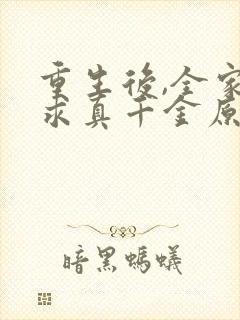 重生後,全家
求真千金原
暗黑螞蟻